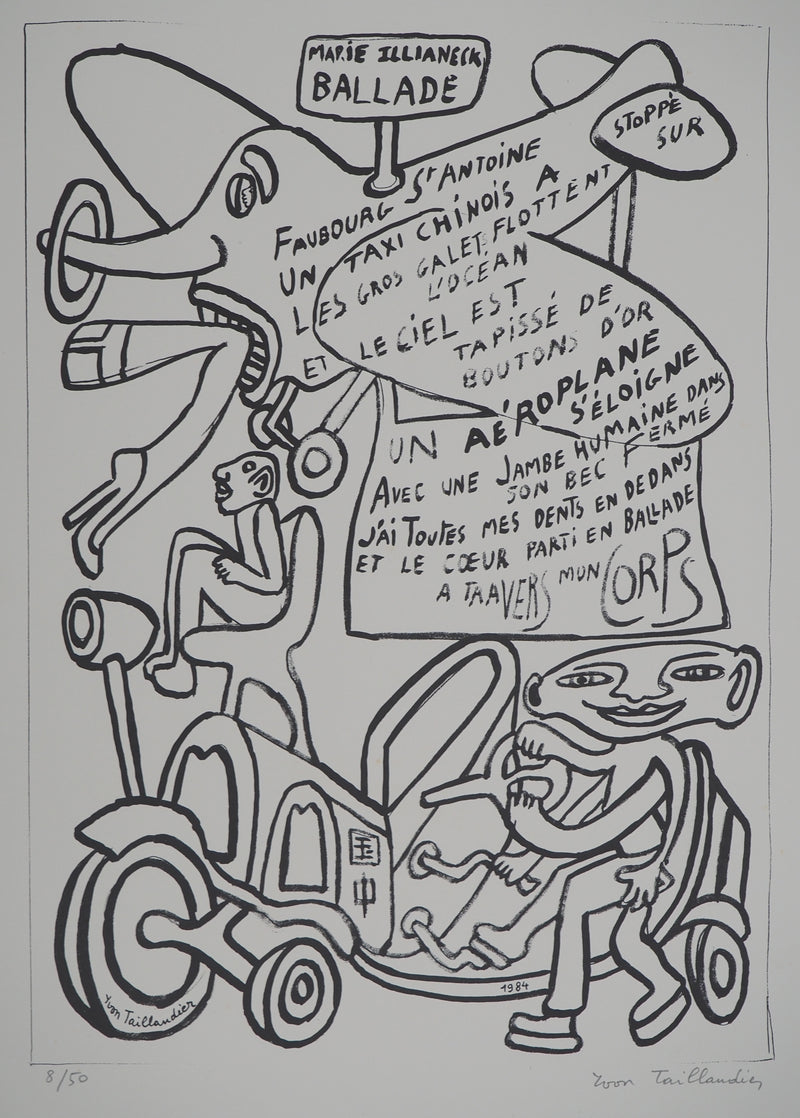 MARIE ILLIANECK
BALLADE
FAUBOURG ST ANTOINE
UN TAXI CHINOIS A
STOPPÉ
SUR
LES GROS GALETS FLOTTENT
L'OCÉAN
ET LE CIEL EST
TAPISSÉ DE
BOUTONS D'OR
UN AÉROPLANE
S'ÉLOIGNE
AVEC UNE JAMBE HUMAINE DANS
SON BEC FERMÉ
J'AI TOUTES MES DENTS EN DEDANS
ET LE CŒUR PARTI EN BALLADE
A TRAVERS MON CORPS
国
中
1984
Yvon Taillandier
8/50
Yvon Taillandier